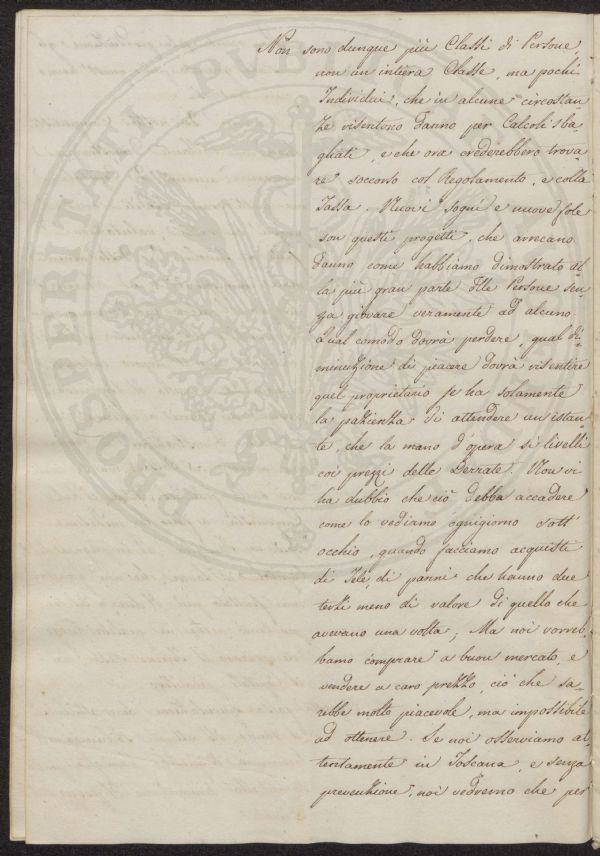 Non sono dunque più Classi di Persone,
non un intiera Classe, ma pochi
Individui, che in alcune circostan-
ze risentono danno per Calcoli sba-
gliati, e che ora crederebbero trova-
re soccorso col Regolamento, e colla
Tassa. Nuovi sogni e nuove fole
son questi progetti, che arrecano
danno come habbiamo dimostrato al-
la più gran parte delle Persone sen-
za giovare veramente ad alcuno.
Qual comodo dovrà perdere, qual di-
minuzione di piacere dovrà risentire
quel proprietario se ha solamente
la pazienza di attendere un istan-
te, che la mano d'opera si livelli
coi prezzi delle Derrate. Non vi
ha dubbio che ciò debba accadere
come lo vediamo ognigiorno sott'
occhio, quando facciamo acquisti
di Tele, di panni che hanno due
terzi meno di valore di quello che
avevano una volta; Ma noi vorreb-
bamo comprare a buon mercato, e
vendere a caro prezzo, ciò che sa-
rebbe molto piacevole, ma impossibile
ad ottenere. Se noi osserviamo at-
tentamente in Toscana, e senza
prevenzione, noi vedremo che per
PROSPERITATI PUBLICAE